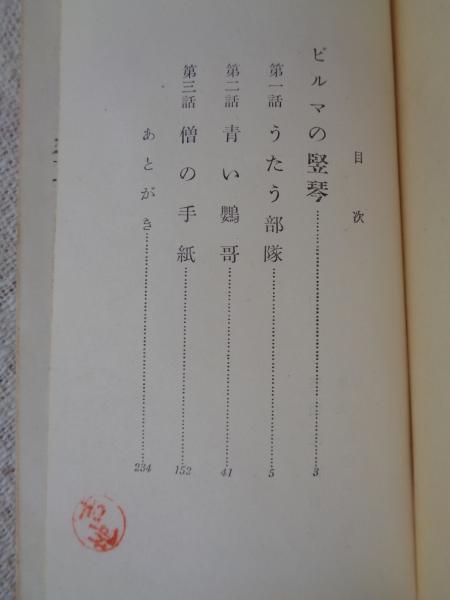 目次
ビルマの竪琴 3
第一話 うたう部隊 5
第二話 青い鸚哥 41
第三話 僧の手紙 152
あとがき 234